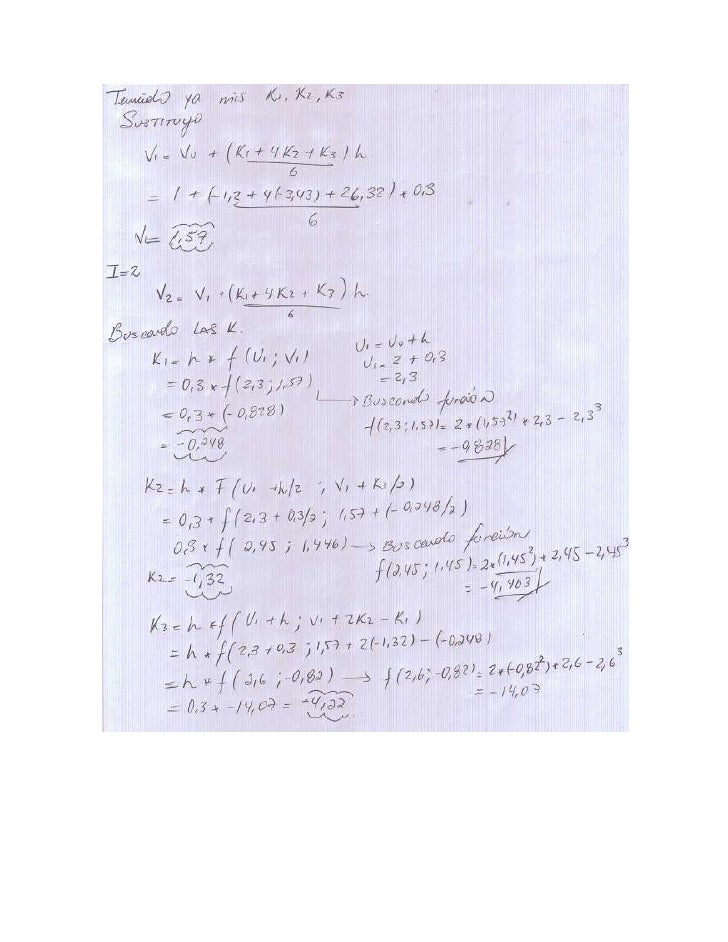 Teniendo ya mis K1, K2, K3
Sustituyo
V1 = V0 + (K1 + 4K2 + K3) h
6
= 1 + (-1,2 + 4(-3,43) + 26,32) * 0,3
6
V= 1,57
I=2
V2 = V1 + (K1 + 4K2 + K3) h.
6
Buscando LAS K.
K1 = h * f (U1 ; V1)
U1 = U0 + h
U1 = 2 + 0,3
= 2,3
= 0,3 * f(2,3 ; 1,57)
→ Buscando función
= 0,3 * (-0,828)
f(2,3 ; 1,57) = 2 * (1,57²) * 2,3 - 2,3³
= -0,828
= -0,248
K2 = h * F (U1 + h/2 ; V1 + K1/2)
= 0,3 * f(2,3 + 0,3/2 ; 1,57 + (-0,248/2)
0,3 * f( 2,45 ; 1,446) → Buscando función
f(2,45 ; 1,45) = 2*(1,45²) * 2,45 - 2,45³
= -4,403
K2 = -1,32
K3 = h * f( U1 + h ; V1 + 2K2 - K1 )
= h * f( 2,3 + 0,3 ; 1,57 + 2(-1,32) - (-0,248)
= h * f( 2,6 ; -0,82) → f(2,6 ; -0,82) = 2*(-0,82²) * 2,6 - 2,6³
= -14,07
= 0,3 * -14,07 = -4,22